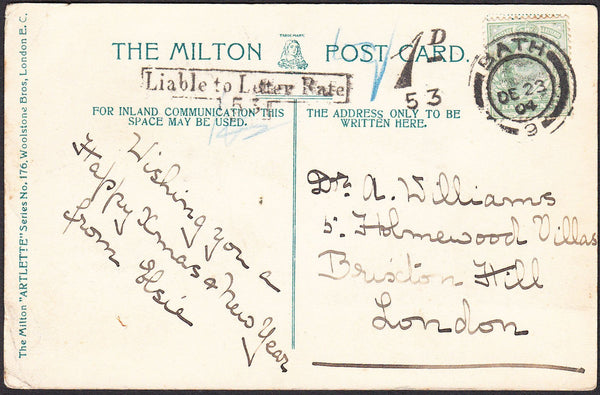 THE MILTON POST CARD.
TRADE MARK
Liable to Letter Rate
1D
53
BATH
DE 23
04
9
FOR INLAND COMMUNICATION THIS
SPACE MAY BE USED.
THE ADDRESS ONLY TO BE
WRITTEN HERE.
Wishing you a
Happy Xmas & New Year
from Elsie
Dr. A. Williams
5. Holmewood Villas
Brixton Hill
London
The Milton "ARTLETTE" Series No. 176, Woolstone Bros, London E.C.